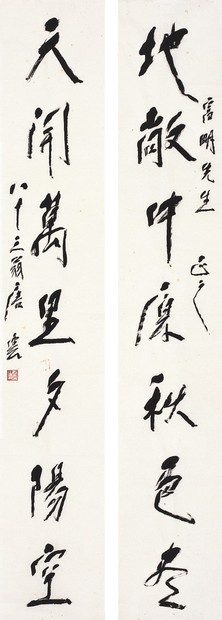 地敞中原秋色尽
富明先生 正之
天開萬里夕陽空
八十三翁唐雲